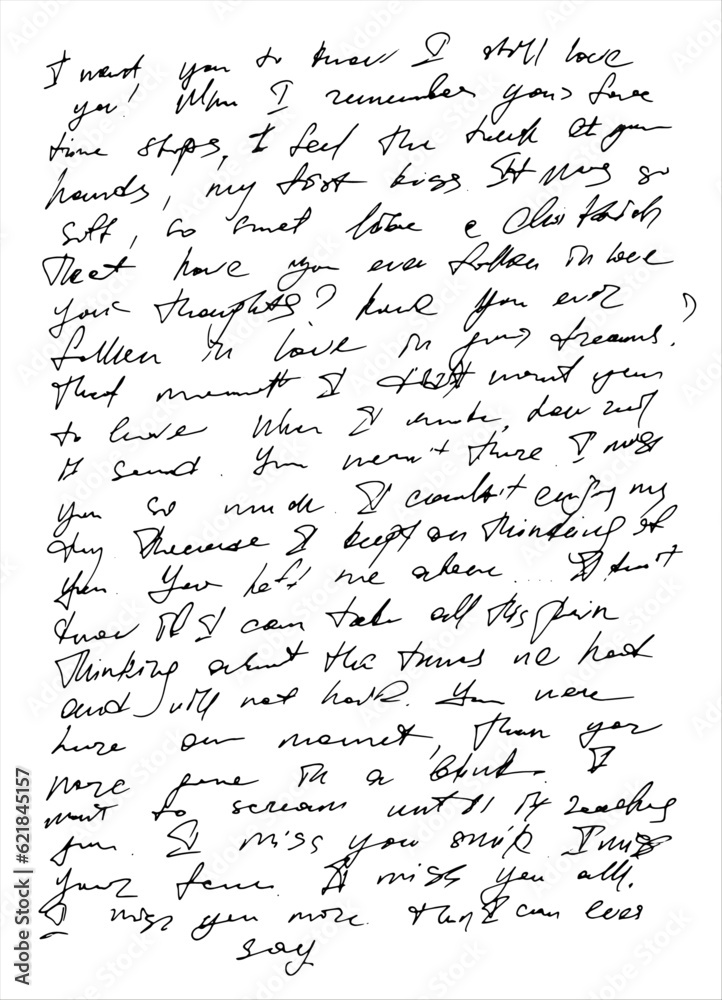 I want you to know I still love
you! When I remember your face
time stops, I feel the touch of your
hands, my first kiss. It was so
soft, so sweet like a
That have you ever fallen in love
your thoughts? have you ever
fallen in love in your dreams?
that moment I didn't want you
to leave When I
it send. You weren't there I miss
you so much I couldn't enjoy my
day Because I kept on thinking of
you. You left me alone .... I don't
know if I can take all this pain
Thinking about the times we had
and will not have. You were
here one moment, than you
were gone in a blink. I
want to scream until it reaches
you. I miss you smile I miss
your face. I miss you all.
I miss you more than I can ever
say
Adobe Stock | #621845157
Adobe Stock